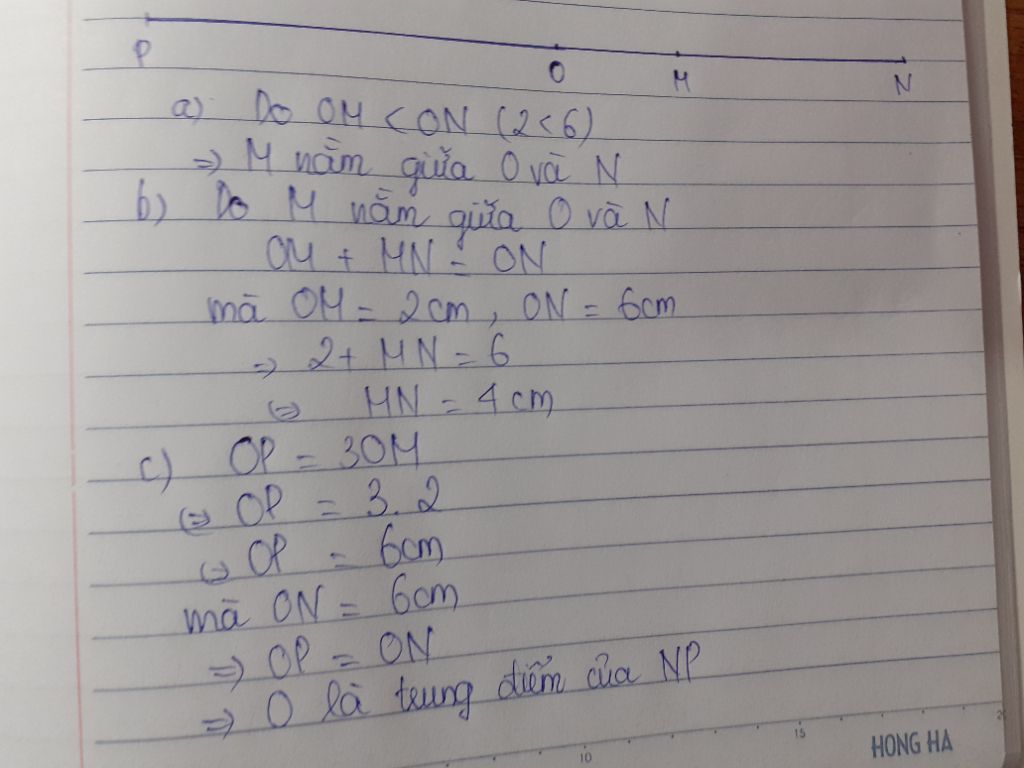 P O M N
a) Do OM < ON (2<6)
=> M nằm giữa O và N
b) Do M nằm giữa O và N
OM + MN = ON
mà OM = 2cm, ON = 6cm
=> 2 + MN = 6
<=> MN = 4 cm
c) OP = 3OM
<=> OP = 3.2
<=> OP = 6cm
mà ON = 6cm
=> OP = ON
=> O là trung điểm của NP
10 15 20
HONG HA